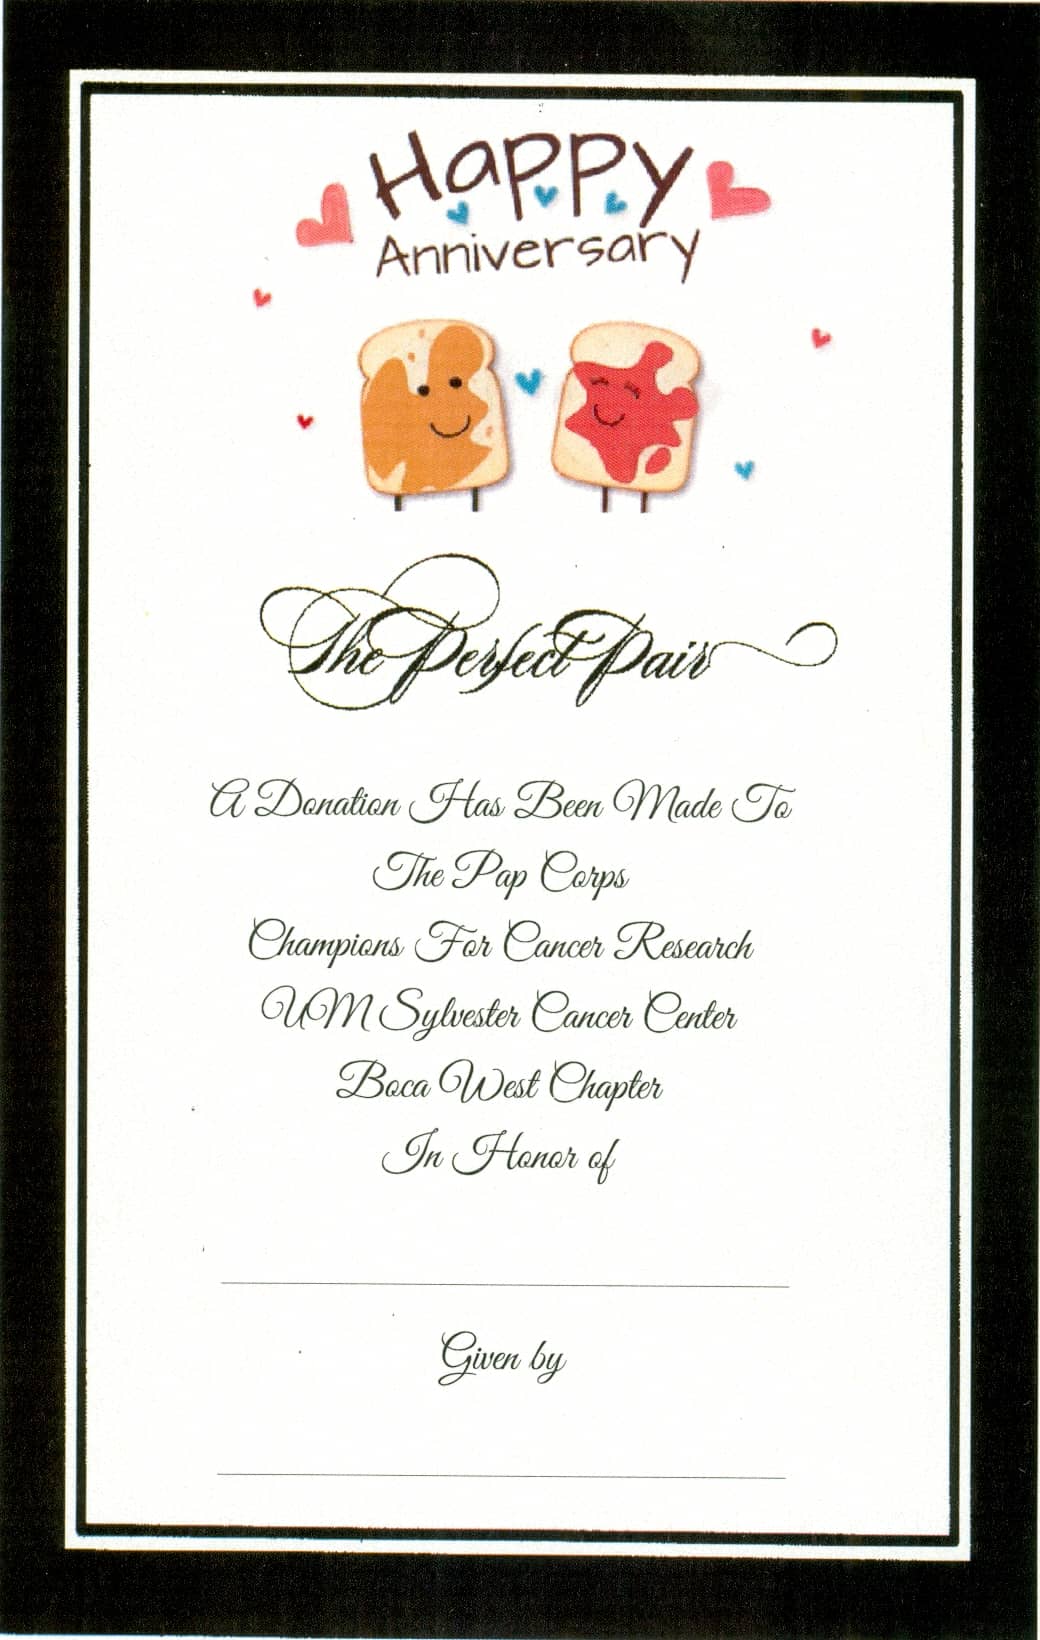 Happy
Anniversary
The Perfect Pair
A Donation Has Been Made To
The Pap Corps
Champions For Cancer Research
UM Sylvester Cancer Center
Boca West Chapter
In Honor of
Given by